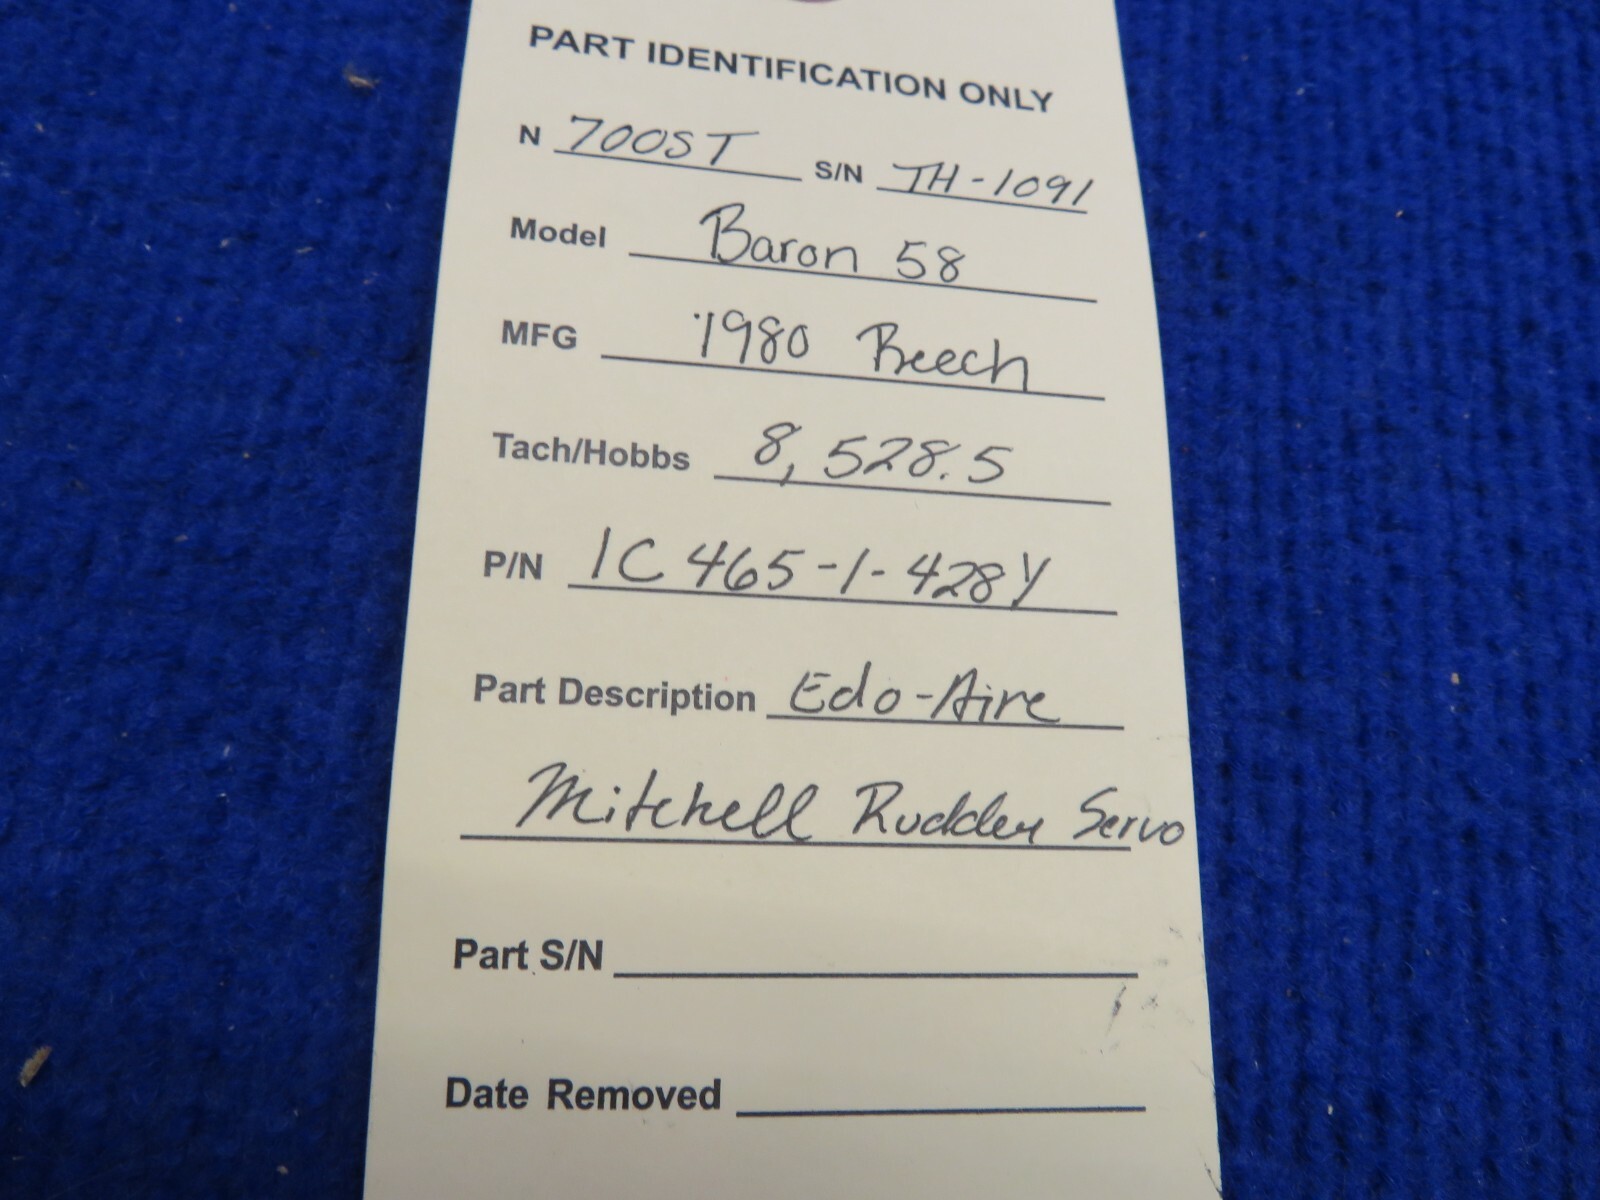 PART IDENTIFICATION ONLY
N 700ST S/N TH-1091
Model Baron 58
MFG 1980 Beech
Tach/Hobbs 8,528.5
P/N 1C465-1-428Y
Part Description Edo-Aire
Mitchell Rudder Servo
Part S/N
Date Removed